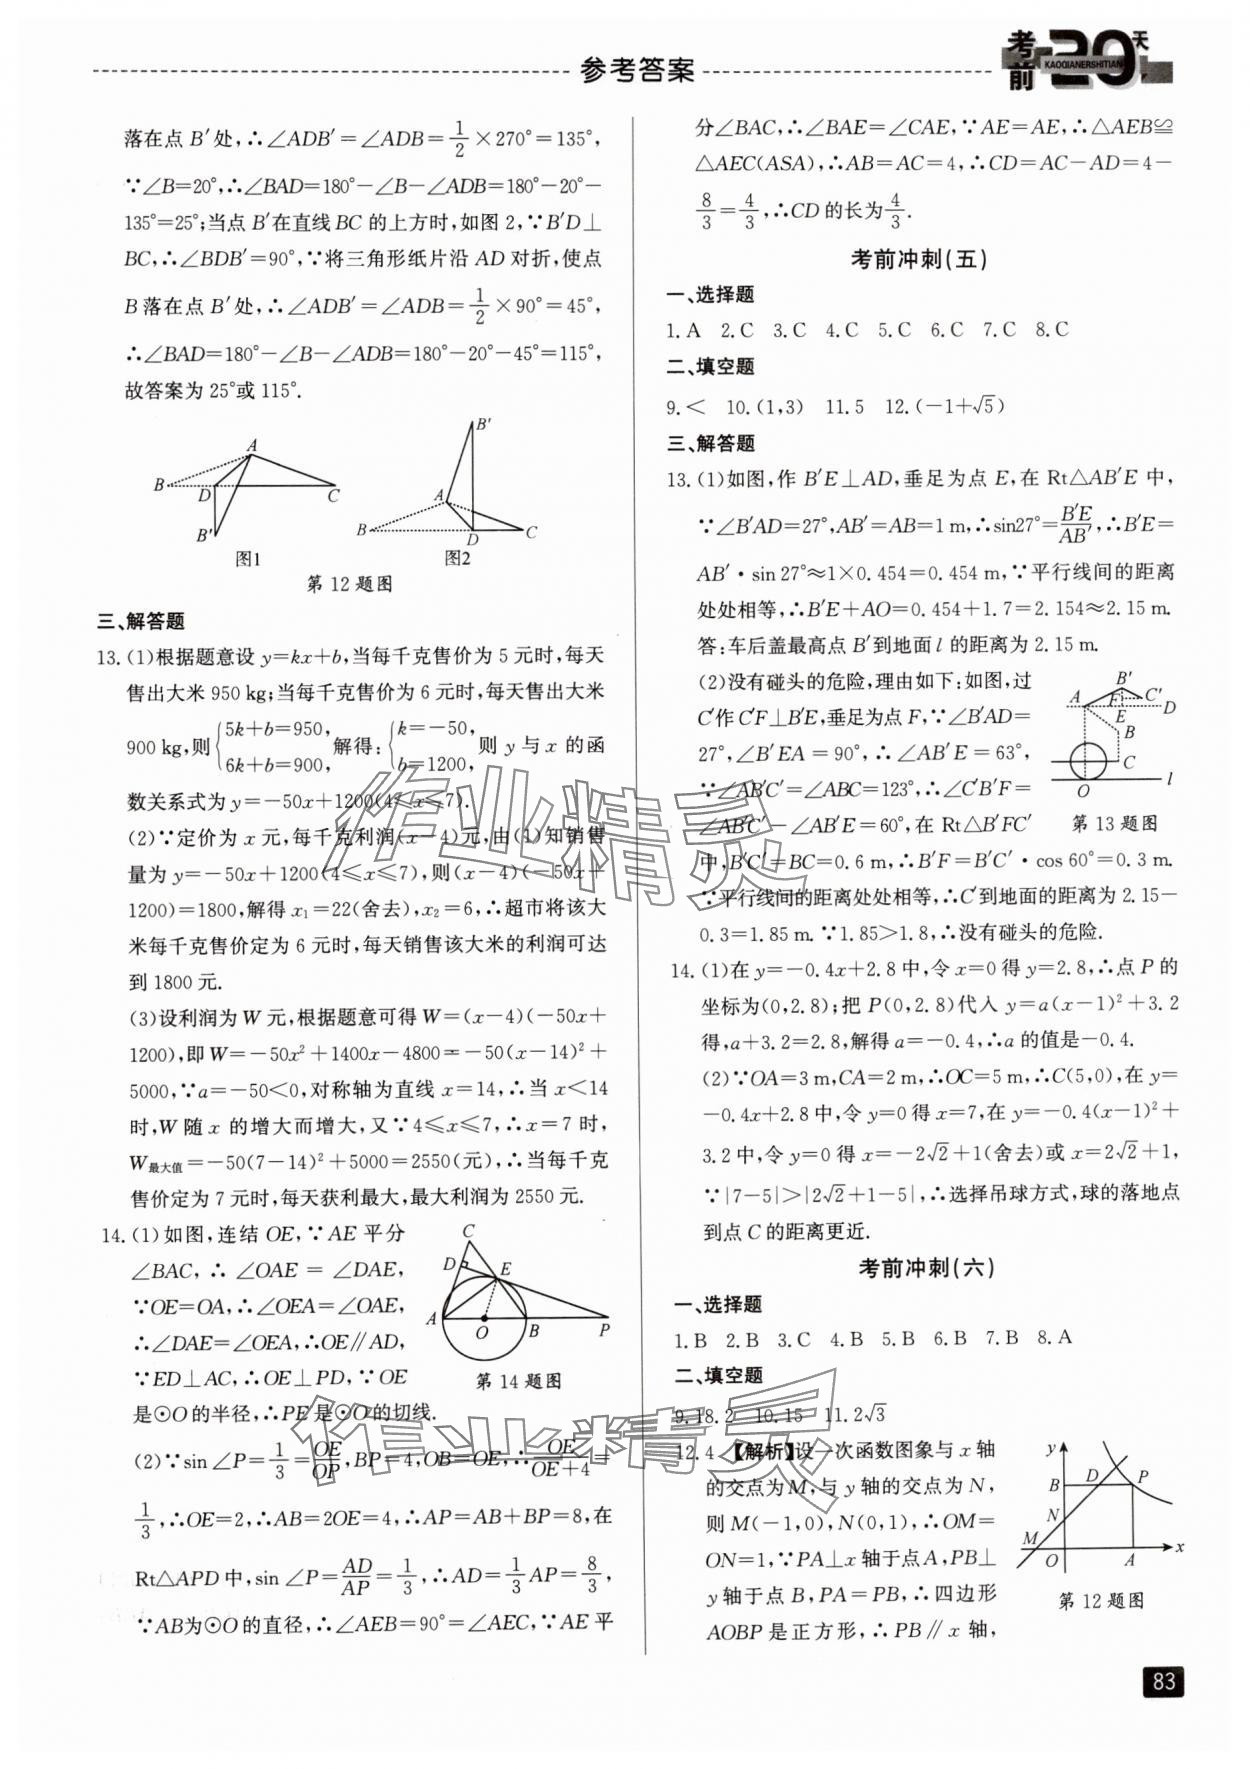 参考答案
考前20天
KAOQIANERSHITIAN
落在点 B′处,∴∠ADB′=∠ADB=1/2×270°=135°,
∵∠B=20°,∴∠BAD=180°-∠B-∠ADB=180°-20°-
135°=25°;当点 B′在直线 BC 的上方时,如图 2,∵B′D⊥
BC,∴∠BDB′=90°,∵将三角形纸片沿 AD 对折,使点
B 落在点 B′处,∴∠ADB′=∠ADB=1/2×90°=45°,
∴∠BAD=180°-∠B-∠ADB=180°-20°-45°=115°,
故答案为 25°或 115°.
A
B
D
C
B′
图1
B′
A
B
D
C
图2
第 12 题图
三、解答题
13. (1)根据题意设 y=kx+b,当每千克售价为 5 元时,每天
售出大米 950 kg;当每千克售价为 6 元时,每天售出大米
900 kg,则{5k+b=950, 6k+b=900, 解得:{k=-50, b=1200, 则 y 与 x 的函
数关系式为 y=-50x+1200(4≤x≤7).
(2)∵定价为 x 元,每千克利润(x-4)元,由(1)知销售
量为 y=-50x+1200(4≤x≤7),则(x-4)(-50x+
1200)=1800,解得 x₁=22(舍去),x₂=6,∴超市将该大
米每千克售价定为 6 元时,每天销售该大米的利润可达
到 1800 元.
(3)设利润为 W 元,根据题意可得 W=(x-4)(-50x+
1200),即 W=-50x²+1400x-4800=-50(x-14)²+
5000,∵a=-50<0,对称轴为直线 x=14,∴当 x<14
时,W 随 x 的增大而增大,又∵4≤x≤7,∴x=7 时,
W最大值=-50(7-14)²+5000=2550(元),∴当每千克
售价定为 7 元时,每天获利最大,最大利润为 2550 元.
14. (1)如图,连结 OE,∵AE 平分
∠BAC,∴∠OAE=∠DAE,
∵OE=OA,∴∠OEA=∠OAE,
∴∠DAE=∠OEA,∴OE∥AD,
∵ED⊥AC,∴OE⊥PD,∵OE
是⊙O的半径,∴PE是⊙O的切线.
C
D
E
A
O
B
P
第 14 题图
(2)∵sin∠P=1/3=OE/OP,BP=4,OB=OE,∴OE/(OE+4)=
1/3,∴OE=2,∴AB=2OE=4,∴AP=AB+BP=8,在
Rt△APD 中,sin∠P=AD/AP=1/3,∴AD=1/3AP=8/3,
∵AB为⊙O的直径,∴∠AEB=90°=∠AEC,∵AE 平
分∠BAC,∴∠BAE=∠CAE,∵AE=AE,∴△AEB≌
△AEC(ASA),∴AB=AC=4,∴CD=AC-AD=4-
8/3=4/3,∴CD的长为4/3.
考前冲刺(五)
一、选择题
1. A 2. C 3. C 4. C 5. C 6. C 7. C 8. C
二、填空题
9. < 10. (1,3) 11. 5 12. (-1+√5)
三、解答题
13. (1)如图,作 B′E⊥AD,垂足为点 E,在 Rt△AB′E 中,
∵∠B′AD=27°,AB′=AB=1 m,∴sin27°=B′E/AB′,∴B′E=
AB′·sin 27°≈1×0.454=0.454 m,∵平行线间的距离
处处相等,∴B′E+AO=0.454+1.7=2.154≈2.15 m.
答:车后盖最高点 B′到地面 l 的距离为 2.15 m.
(2)没有碰头的危险,理由如下:如图,过
C′作 C′F⊥B′E,垂足为点 F,∵∠B′AD=
27°,∠B′EA=90°,∴∠AB′E=63°,
∵∠AB′C′=∠ABC=123°,∴∠C′B′F=
∠AB′C′-∠AB′E=60°,在 Rt△B′FC′
中,B′C′=BC=0.6 m,∴B′F=B′C′·cos 60°=0.3 m.
∵平行线间的距离处处相等,∴C′到地面的距离为 2.15-
0.3=1.85 m.∵1.85>1.8,∴没有碰头的危险.
B′
A
F
C′
E
D
B
C
O
l
第 13 题图
14. (1)在 y=-0.4x+2.8 中,令 x=0 得 y=2.8,∴点 P 的
坐标为(0,2.8);把 P(0,2.8)代入 y=a(x-1)²+3.2
得,a+3.2=2.8,解得 a=-0.4,∴a 的值是-0.4.
(2)∵OA=3 m,CA=2 m,∴OC=5 m,∴C(5,0),在 y=
-0.4x+2.8 中,令 y=0 得 x=7,在 y=-0.4(x-1)²+
3.2 中,令 y=0 得 x=-2√2+1(舍去)或 x=2√2+1,
∵|7-5|>|2√2+1-5|,∴选择吊球方式,球的落地点
到点 C 的距离更近.
考前冲刺(六)
一、选择题
1. B 2. B 3. C 4. B 5. B 6. B 7. B 8. A
二、填空题
9. 18.2 10. 15 11. 2√3
12. 4 【解析】设一次函数图象与 x 轴
的交点为 M,与 y 轴的交点为 N,
则 M(-1,0),N(0,1),∴OM=
ON=1,∵PA⊥x 轴于点 A,PB⊥
y 轴于点 B,PA=PB,∴四边形
AOBP 是正方形,∴PB∥x 轴,
y
B
D
P
N
M
O
A
x
第 12 题图
作业精灵
作业精灵
83